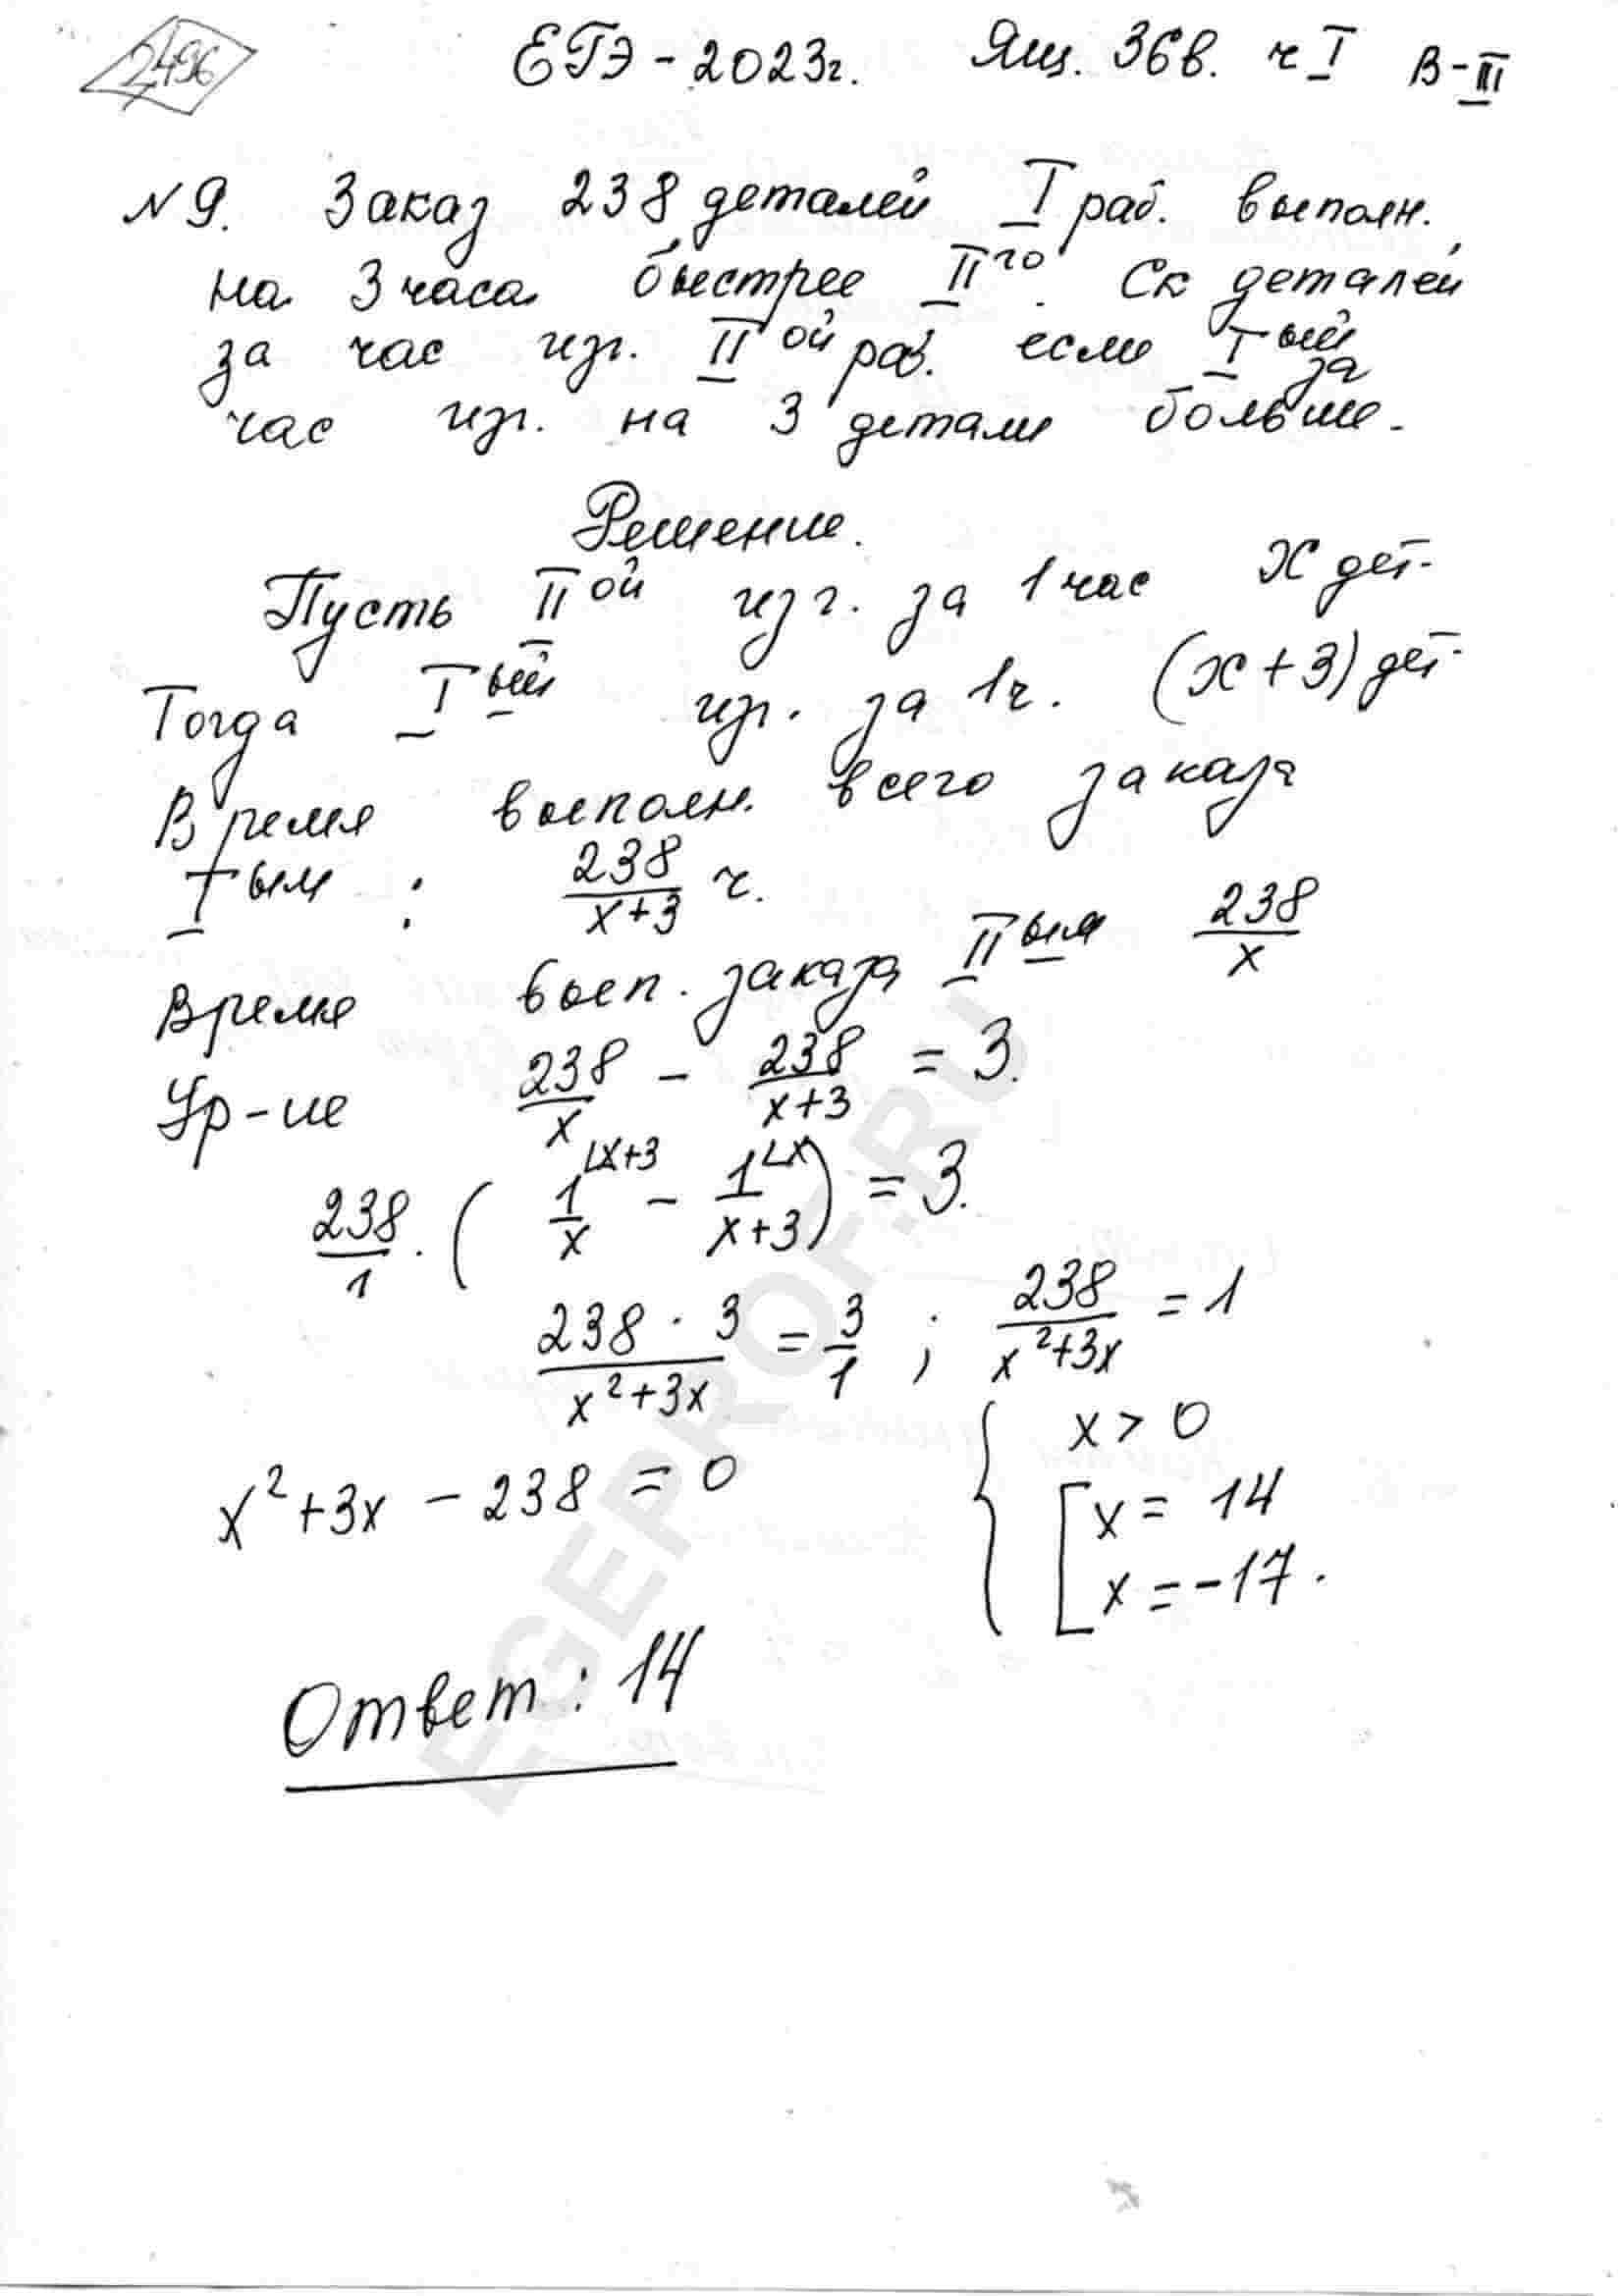 2496
ЕГЭ-2023г. Ящ. 36в. ч I В-III
N 9. Заказ 238 деталей I раб. выполн.
на 3 часа быстрее II го. Ск деталей
за час изг. II ой раб. если I ый за
час изг. на 3 детали больше.
Решение.
Пусть II ой изг. за 1 час x дет.
Тогда I ый изг. за 1ч. (x+3) дет.
Время выполн. всего заказа
I ым : 238/(x+3) ч.
Время вып. заказа II ым 238/x
Ур-ие 238/x - 238/(x+3) = 3.
238/1 · (1/x ∠x+3 - 1/(x+3) ∠x) = 3.
238 · 3/(x²+3x) = 3/1 ; 238/(x²+3x) = 1
x²+3x - 238 = 0 { x > 0
[ x = 14
x = -17.
Ответ: 14
EGEPROF.RU